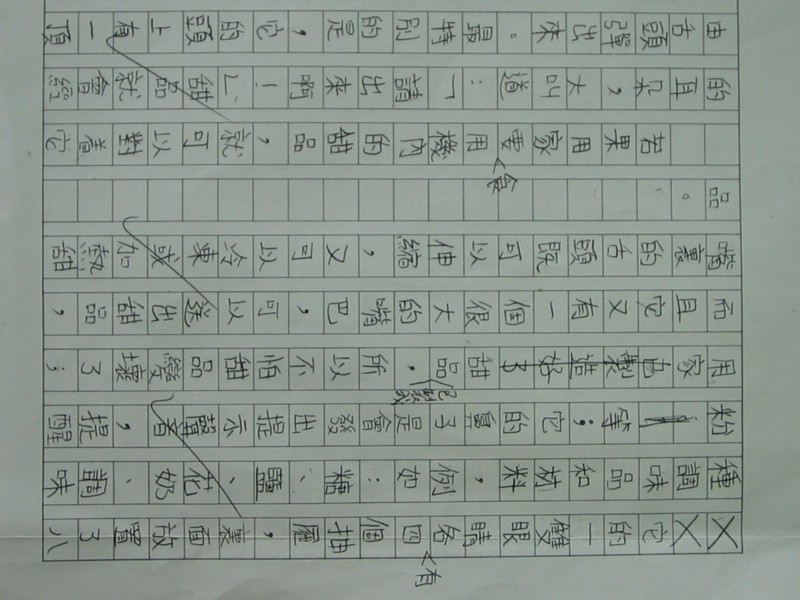 它的一雙眼睛各有四個抽屜，裏面放置了八
種調味品和材料，例如：糖、鹽、花奶、調味
粉等；它的鼻子是會發出提示聲音，提醒
用家已製成甜品，所以不怕甜品變壞了；
而且它又有一個很大的嘴巴，可以送出甜品，
嘴裏的舌頭既可以伸縮，又可以冷凍或加熱甜
品。
若果用家要食用機內的甜品，就可以對着它
的耳朵，大叫道：「請出來啊！」甜品就會經
由舌頭彈出來。最特別的是，它的頭上有一頂